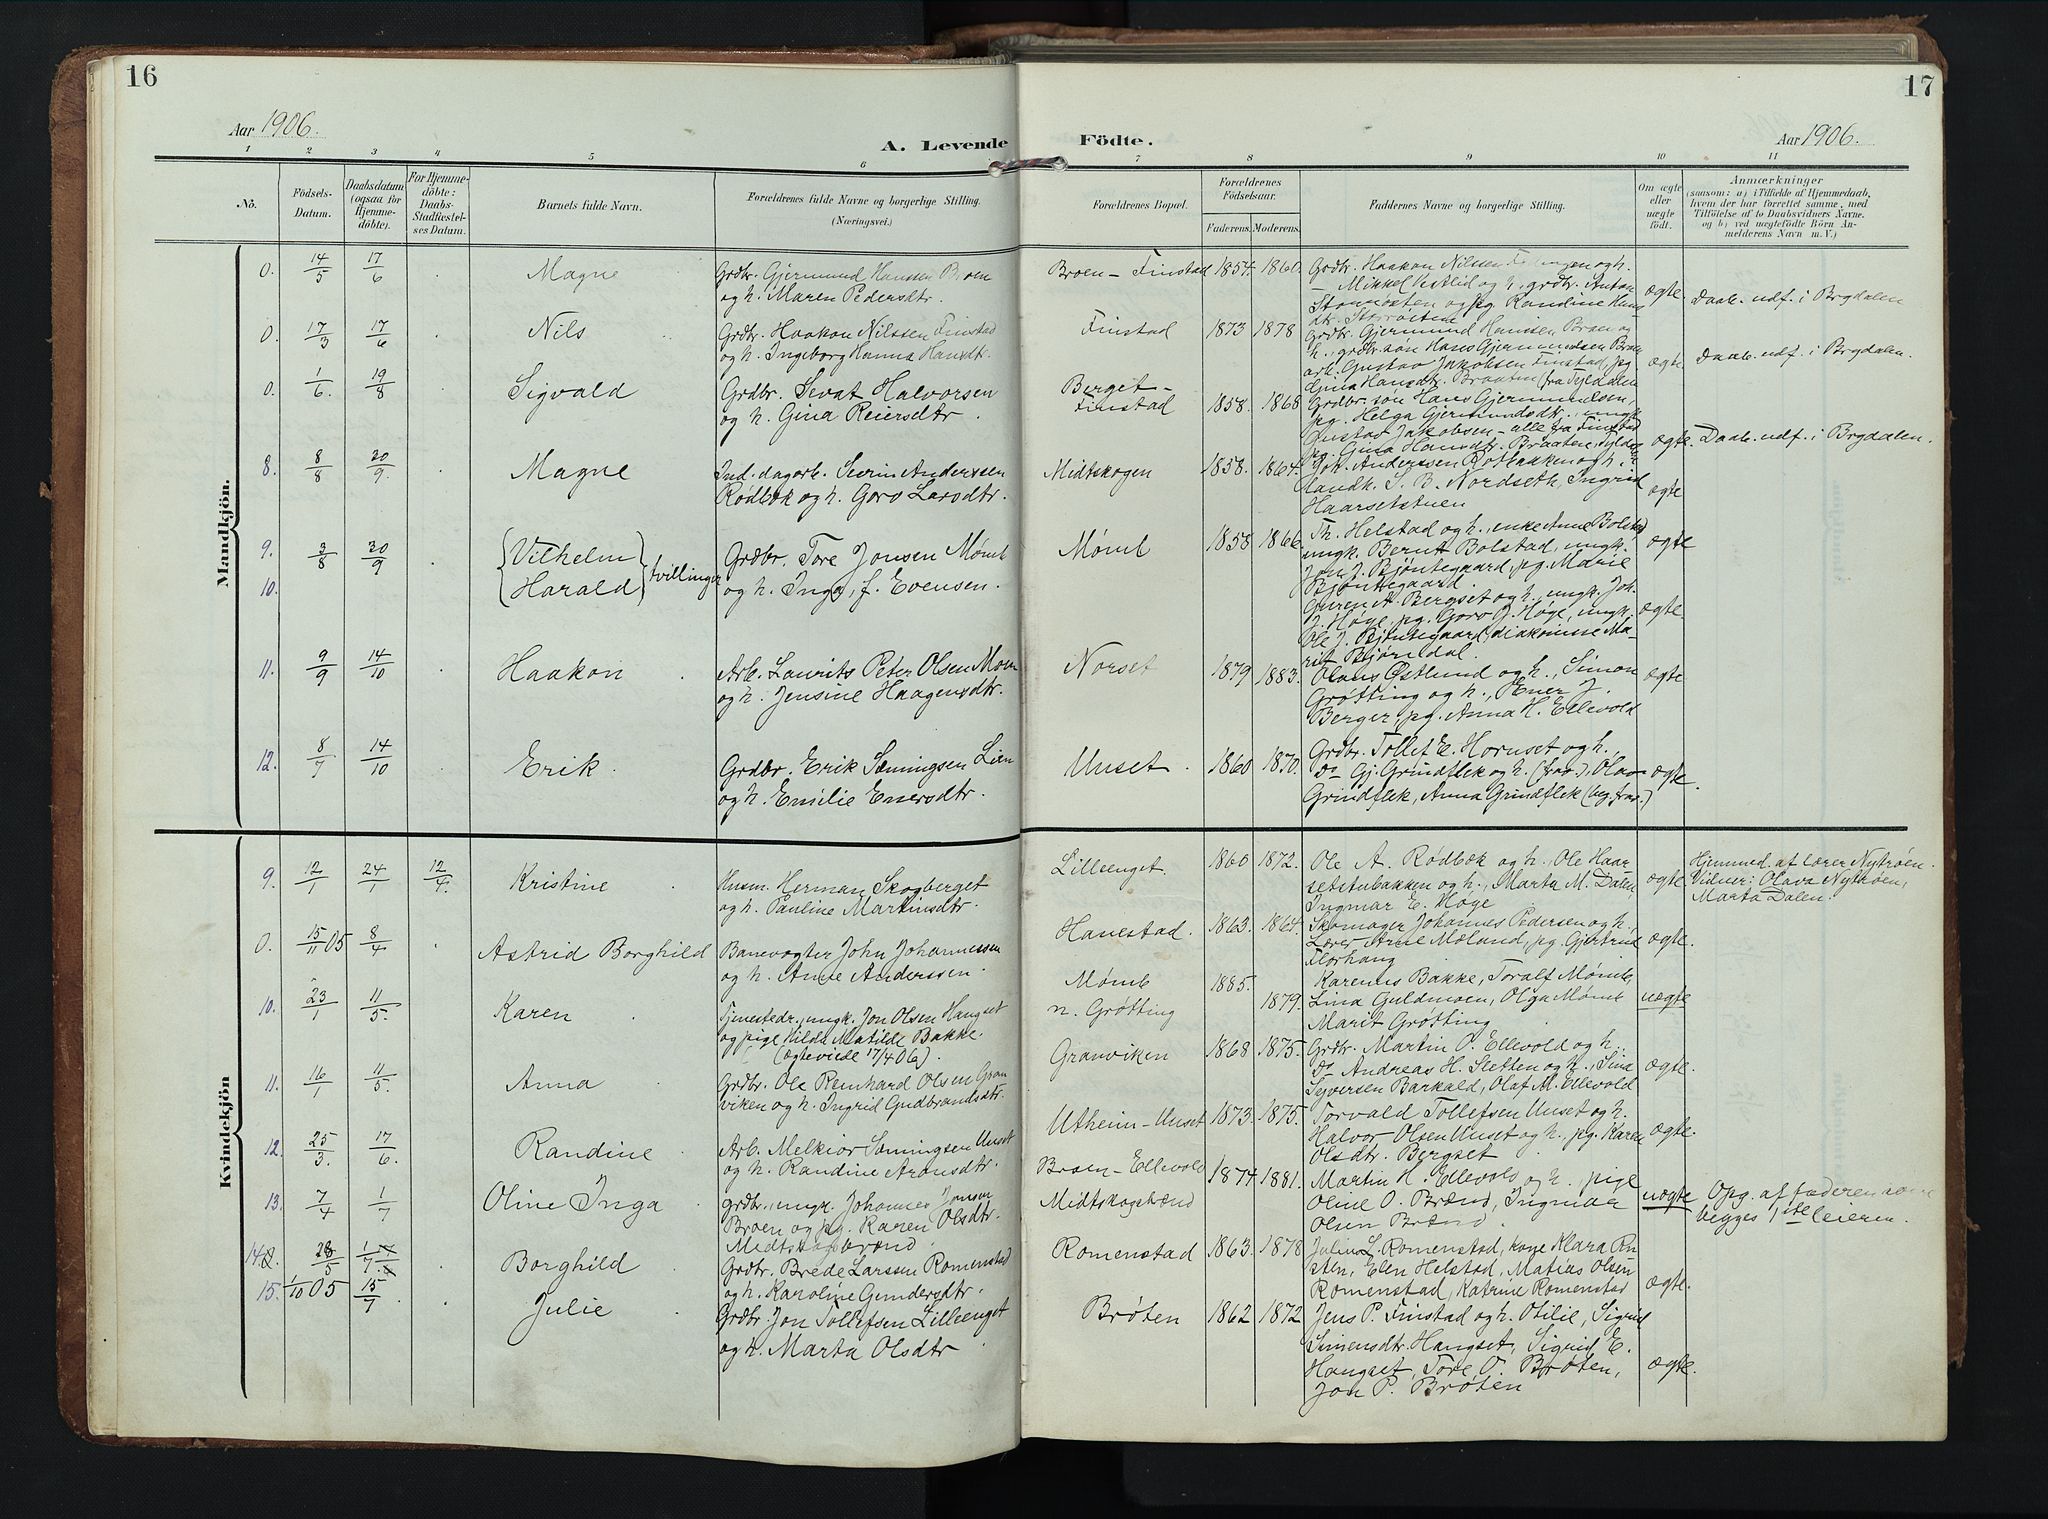 16
Aar 1906.
A. Levende
1 2 3 4 5 6
No.
Födsels-Datum.
Daabsdatum (ogsaa for Hjemme-döbte).
For Hjemme-döbte: Daabs-Stadfæstel-ses Datum.
Barnets fulde Navn.
Forældrenes fulde Navne og borgerlige Stilling.
(Næringsvei.)
Mandkjön.
0. 14/5 17/6 Magne Grdbr. Gjermund Hanssen Broen
og h. Maren Pedersdtr.
0. 17/3 17/6 Nils Grdbr. Haakon Nilssen Finstad
og h. Ingeborg Hanna Hansdtr.
0. 1/6. 19/8 Sigvald Grdbr. Sevat Halvorsen
og h. Gina Reiersdtr.
8. 8/8 30/9. Magne Ind. dagarb. Severin Anderssen
Rødbæk og h. Goro Larsdtr.
9. 3/8 30/9 Vilhelm
10. Harald tvillinger
Grdbr. Tore Jonsen Mømb
og h. Inga, f. Evensen.
11. 9/9 14/10 Haakon Arb. Laurits Peter Olsen Moen
og h. Jensine Haagensdtr.
12. 8/7 14/10 Erik. Grdbr. Erik Sæmingsen Lien
og h. Emilie Enersdtr.
Kvindekjön
9. 12/1 24/1 12/4. Kristine Husm. Herman Skogberget
og h. Pauline Martinsdtr.
0. 15/11 05 8/4 Astrid Borghild Banevogter John Johannessen
og h. Anne Anderssen.
10. 23/1 11/5. Karen Tjenestedr., ungk. Jon Olsen Hangset
og pige Hilda Matilde Bakke.
(ægteviede 17/4 06).
11. 16/1 11/5. Anna Grdbr. Ole Reinhard Olsen Gran-
viken og h. Ingrid Gudbrandsdtr.
12. 25/3. 17/6. Randine Arb. Melkior Sæmingsen Unset
og h. Randine Aronsdtr.
13. 7/4 1/7 Oline Inga grdbr., ungk. Johannes Jonsen
Broen og pg. Karen Olsdtr.
Midtskogbrænd.
14. 28/5 1/7 Borghild Grdbr. Brede Larssen Romenstad
og h. Karoline Gundersdtr.
15. 1/10 05 15/7 Julie Grdbr. Jon Tollefsen Lilleenget
og h. Marta Olsdtr.
17
Födte.
Aar 1906.
7 8 9 10 11
Forældrenes Bopæl.
Forældrenes Födselsaar.
Faderens. Moderens.
Faddernes Navne og borgerlige Stilling.
Om ægte eller uægte födt.
Anmærkninger
(saasom: a) i Tilfælde af Hjemmedaab, hvem der har forrettet samme, med Tilföielse af to Daabsvidners Navne. og b) ved uægtefödte Börn An-melderens Navn m. V.)
Broen - Finstad 1854. 1860. Grdbr. Haakon Nilssen og h.
Mikkel og h., grdbr. Anton
og pg. Randine Hans-
dtr.
ægte Daab. udf. i Brydalen
Finstad 1873 1878 Grdbr. Gjermund Hanssen Broen og
h., grdbr. søn Hans Gjermundsen Broen
arb. Gustav Jakobsen Finstad, pg.
Gina Hansdtr. Braaten (fra Tyldalen
ægte Daab. udf. i Brydalen.
Berget -
Finstad 1858. 1868 Grdbr. søn Hans Gjermundsen,
pg. Helga Gjermundsdtr., ungk.
Gustav Jakobsen - alle fra Finstad
pg. Gina Hansdtr. Braaten, Tyldalen
ægte. Daab. udf. i Brydalen.
Midtskogen 1858. 1864. Joh. Anderssen Rotbakken og h.
Landh. S. B. Nordseth, Ingrid
Haarsetstuen
ægte
Mømb 1858 1866. Th. Helstad og h., enke Anne Bolstad
ungk. Bernt Bolstad, ungk.
Jon J. Bjøntegaard, pg. Marie
Bjøntegaard.
ægte
A. Bergset og h., ungk. Joh.
J. Høge, pg. Goro J. Høge, ungk.
Ole J. Bjøntegaard, diakonisse Ma-
rit Bjørndal.
ægte.
Norset 1879 1883. Olaus Østlund og h., Simon
Grøtting og h., Ener J.
Berger, pg. Anna H. Ellevold
ægte
Unset. 1860 1870. Grdbr. Tollef E. Hornset og h.,
do Gj. Grindflek og h. (frav.), Olav
Grindflek, Anna Grindflek (beg. frav.)
ægte.
Lilleenget. 1860 1872. Ole A. Rødbæk og h., Ole Haar-
setstubakken og h., Marta M. Dalen,
Ingmar E. Høge
ægte.
Hjemmed. af lærer Nytrøen.
Vidner: Olava Nytrøen,
Marta Dalen.
Hanestad. 1863. 1864. Skomager Johannes Pedersen og h.,
Lærer Arne Mæland, pg. Gjertrud
Florhang
ægte.
Mømb 1885.
n. Grøtting 1879. Karenus Bakke, Toralf Mømb,
Lina Guldmoen, Olga Mømb
Marit Grøtting
uægte
Granviken 1868 1875. Grdbr. Martin P. Ellevold og h.
do Andreas H. Sletten og h., Sina
Syversen Barkald, Olaf M. Ellevold
ægte.
Utheim - Unset 1873. 1875. Torvald Tollefsen Unset og h.
Halvor Olsen Unset og h., pg. Karen
Olsdtr. Bergset
ægte.
Broen - Ellevold 1874 1881.
Midtskogbrænd Martin H. Ellevold og h., pige
Oline O. Brænd, Ingmar
Olsen Brænd.
uægte Opg. af faderen som
begges 1ste leieren.
Romenstad 1863. 1878 Julius L. Romenstad, kone Klara
Elen Helstad, Matias Olsen
Romenstad, Katrine Romenstad
ægte.
Brøten 1862 1872 Jens P. Finstad og h. Otilie, Sigrid
Simensdtr. Hangset, Sigrid E.
Hangset, Tore O. Brøten,
Jon P. Brøten
ægte.